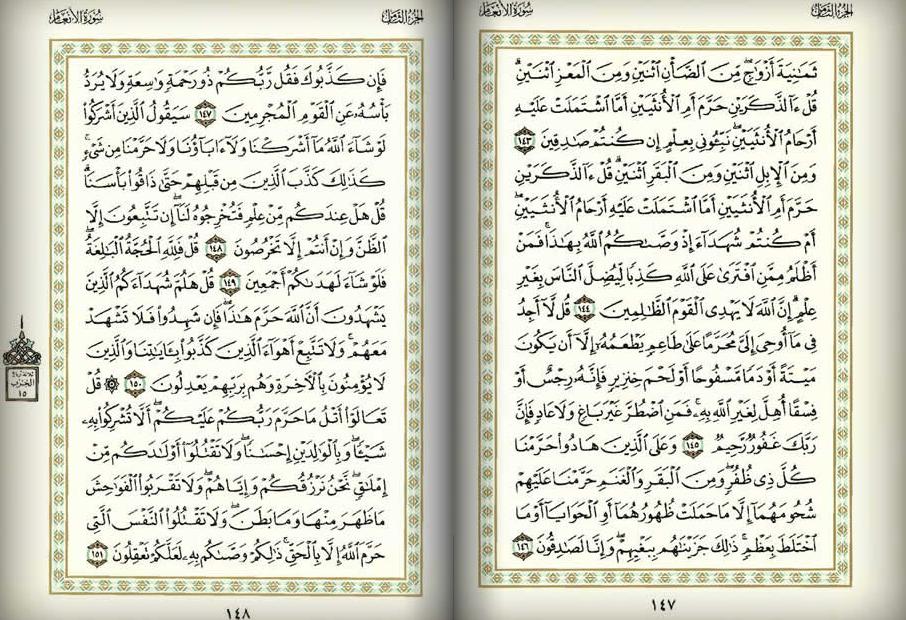 الجزء الثامن
سورة الأنعام
ثَمَٰنِيَةَ أَزْوَٰجٍۖ مِّنَ ٱلضَّأْنِ ٱثْنَيْنِ وَمِنَ ٱلْمَعْزِ ٱثْنَيْنِۗ
قُلْ ءَآلذَّكَرَيْنِ حَرَّمَ أَمِ ٱلْأُنثَيَيْنِ أَمَّا ٱشْتَمَلَتْ عَلَيْهِ
أَرْحَامُ ٱلْأُنثَيَيْنِۖ نَبِّـُٔونِي بِعِلْمٍ إِن كُنتُمْ صَٰدِقِينَ ١٤٣
وَمِنَ ٱلْإِبِلِ ٱثْنَيْنِ وَمِنَ ٱلْبَقَرِ ٱثْنَيْنِۗ قُلْ ءَآلذَّكَرَيْنِ
حَرَّمَ أَمِ ٱلْأُنثَيَيْنِ أَمَّا ٱشْتَمَلَتْ عَلَيْهِ أَرْحَامُ ٱلْأُنثَيَيْنِۖ
أَمْ كُنتُمْ شُهَدَآءَ إِذْ وَصَّىٰكُمُ ٱللَّهُ بِهَٰذَاۚ فَمَنْ
أَظْلَمُ مِمَّنِ ٱفْتَرَىٰ عَلَى ٱللَّهِ كَذِبًا لِّيُضِلَّ ٱلنَّاسَ بِغَيْرِ
عِلْمٍۗ إِنَّ ٱللَّهَ لَا يَهْدِي ٱلْقَوْمَ ٱلظَّٰلِمِينَ ١٤٤ قُل لَّآ أَجِدُ
فِي مَآ أُوحِيَ إِلَيَّ مُحَرَّمًا عَلَىٰ طَاعِمٍ يَطْعَمُهُۥٓ إِلَّآ أَن يَكُونَ
مَيْتَةً أَوْ دَمًا مَّسْفُوحًا أَوْ لَحْمَ خِنزِيرٍ فَإِنَّهُۥ رِجْسٌ أَوْ
فِسْقًا أُهِلَّ لِغَيْرِ ٱللَّهِ بِهِۦۚ فَمَنِ ٱضْطُرَّ غَيْرَ بَاغٍ وَلَا عَادٍ فَإِنَّ
رَبَّكَ غَفُورٌ رَّحِيمٌ ١٤٥ وَعَلَى ٱلَّذِينَ هَادُوا۟ حَرَّمْنَا
كُلَّ ذِي ظُفُرٍۖ وَمِنَ ٱلْبَقَرِ وَٱلْغَنَمِ حَرَّمْنَا عَلَيْهِمْ
شُحُومَهُمَآ إِلَّا مَا حَمَلَتْ ظُهُورُهُمَآ أَوِ ٱلْحَوَايَآ أَوْ مَا
ٱخْتَلَطَ بِعَظْمٍۚ ذَٰلِكَ جَزَيْنَٰهُم بِبَغْيِهِمْۖ وَإِنَّا لَصَٰدِقُونَ ١٤٦
١٤٧
الجزء الثامن
سورة الأنعام
فَإِن كَذَّبُوكَ فَقُل رَّبُّكُمْ ذُو رَحْمَةٍ وَٰسِعَةٍ وَلَا يُرَدُّ
بَأْسُهُۥ عَنِ ٱلْقَوْمِ ٱلْمُجْرِمِينَ ١٤٧ سَيَقُولُ ٱلَّذِينَ أَشْرَكُوا۟
لَوْ شَآءَ ٱللَّهُ مَآ أَشْرَكْنَا وَلَآ ءَابَآؤُنَا وَلَا حَرَّمْنَا مِن شَيْءٍۚ
كَذَٰلِكَ كَذَّبَ ٱلَّذِينَ مِن قَبْلِهِمْ حَتَّىٰ ذَاقُوا۟ بَأْسَنَاۗ
قُلْ هَلْ عِندَكُم مِّنْ عِلْمٍ فَتُخْرِجُوهُ لَنَآۖ إِن تَتَّبِعُونَ إِلَّا
ٱلظَّنَّ وَإِنْ أَنتُمْ إِلَّا تَخْرُصُونَ ١٤٨ قُلْ فَلِلَّهِ ٱلْحُجَّةُ ٱلْبَٰلِغَةُۖ
فَلَوْ شَآءَ لَهَدَىٰكُمْ أَجْمَعِينَ ١٤٩ قُلْ هَلُمَّ شُهَدَآءَكُمُ ٱلَّذِينَ
يَشْهَدُونَ أَنَّ ٱللَّهَ حَرَّمَ هَٰذَاۖ فَإِن شَهِدُوا۟ فَلَا تَشْهَدْ
مَعَهُمْۚ وَلَا تَتَّبِعْ أَهْوَآءَ ٱلَّذِينَ كَذَّبُوا۟ بِـَٔايَٰتِنَا وَٱلَّذِينَ
لَا يُؤْمِنُونَ بِٱلْءَاخِرَةِ وَهُم بِرَبِّهِمْ يَعْدِلُونَ ١٥٠ ۞ قُلْ
تَعَالَوْا۟ أَتْلُ مَا حَرَّمَ رَبُّكُمْ عَلَيْكُمْۖ أَلَّا تُشْرِكُوا۟ بِهِۦ
شَيْـًٔاۖ وَبِٱلْوَٰلِدَيْنِ إِحْسَٰنًاۖ وَلَا تَقْتُلُوٓا۟ أَوْلَٰدَكُم مِّنْ
إِمْلَٰقٍۖ نَّحْنُ نَرْزُقُكُمْ وَإِيَّاهُمْۖ وَلَا تَقْرَبُوا۟ ٱلْفَوَٰحِشَ
مَا ظَهَرَ مِنْهَا وَمَا بَطَنَۖ وَلَا تَقْتُلُوا۟ ٱلنَّفْسَ ٱلَّتِي
حَرَّمَ ٱللَّهُ إِلَّا بِٱلْحَقِّۚ ذَٰلِكُمْ وَصَّىٰكُم بِهِۦ لَعَلَّكُمْ تَعْقِلُونَ ١٥١
ثلاثة أرباع
الحزب
١٥
١٤٨